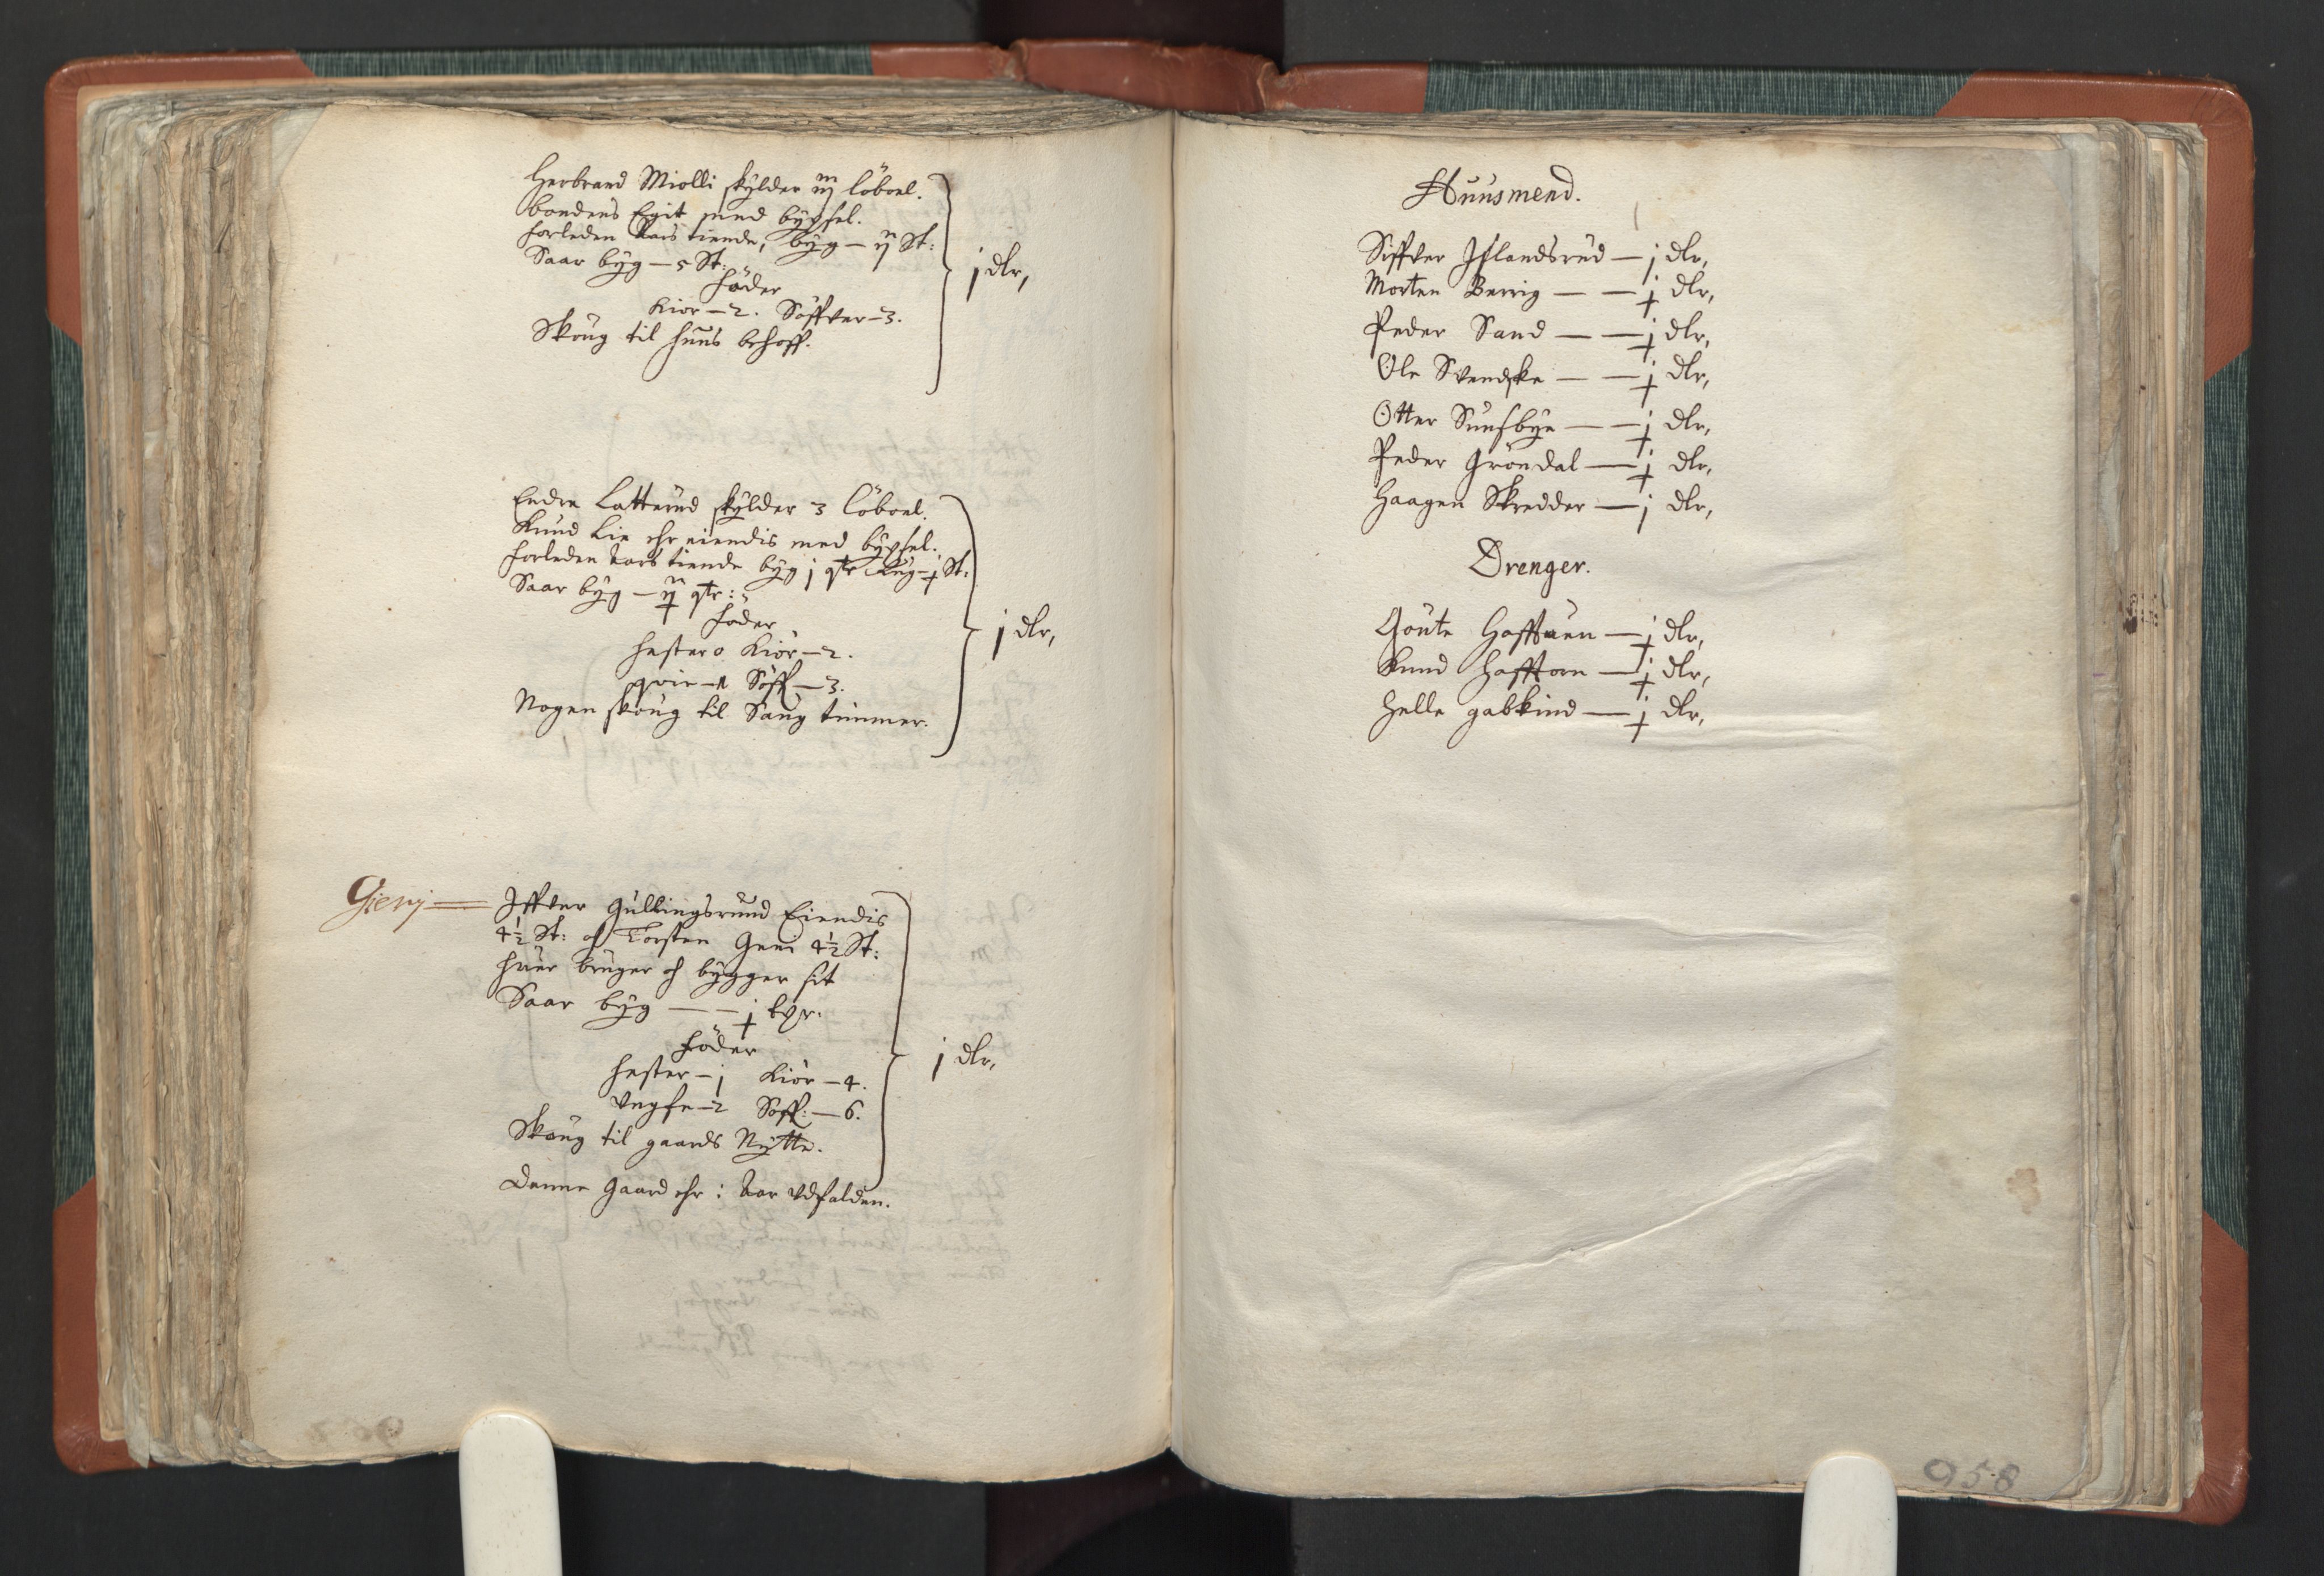 Herbrand Miolli skÿlder iij löboel.
bondens Egit med bÿxsel.
forleden Aars tiende, bÿg — ij St:
Saar bÿg — 5 St:
föder
Kiör — 2. Söffuer — 3.
Skoug til huus behoff.
j dlr,
Endre Latterud skÿlder 3 löboel.
Knud Lie ehr eiendis med bÿxsel.
forleden Aars tiende bÿg j qtr Rug — ½ St:
Saar bÿg — ij qtr:
föder
hester 0 Kiör — 2.
qvie — 1 Söff — 3.
Nogen skoug til Saug timmer.
j dlr,
Gieni
Iffuer Gulbingsruud Eiendis
4½ St: oc Torsten Geni 4½ St:
huer bruger oc bÿgger sit
Saar bÿg — — ½ tÿr.
föder
hester — j Kiör — 4.
Vngfe — 2 Söff: — 6.
Skoug til gaards Nÿtte.
Denne Gaard ehr i Aar vdfalden.
j dlr,
Huusmend.
Siffuer Islandsrud — j dlr,
Morten Berrig — — ½ dlr,
Peder Sand — — ½ dlr,
Ole Svendske — — ½ dlr,
Otter Sunsbÿe — — ½ dlr,
Peder Gröndal — ½ dlr,
Haagen Skredder — j dlr,
Drenger.
Goute Hafftuen — ½ dlr,
Knud Hafftorn — ½ dlr,
Helle gabkind — ½ dlr,
958